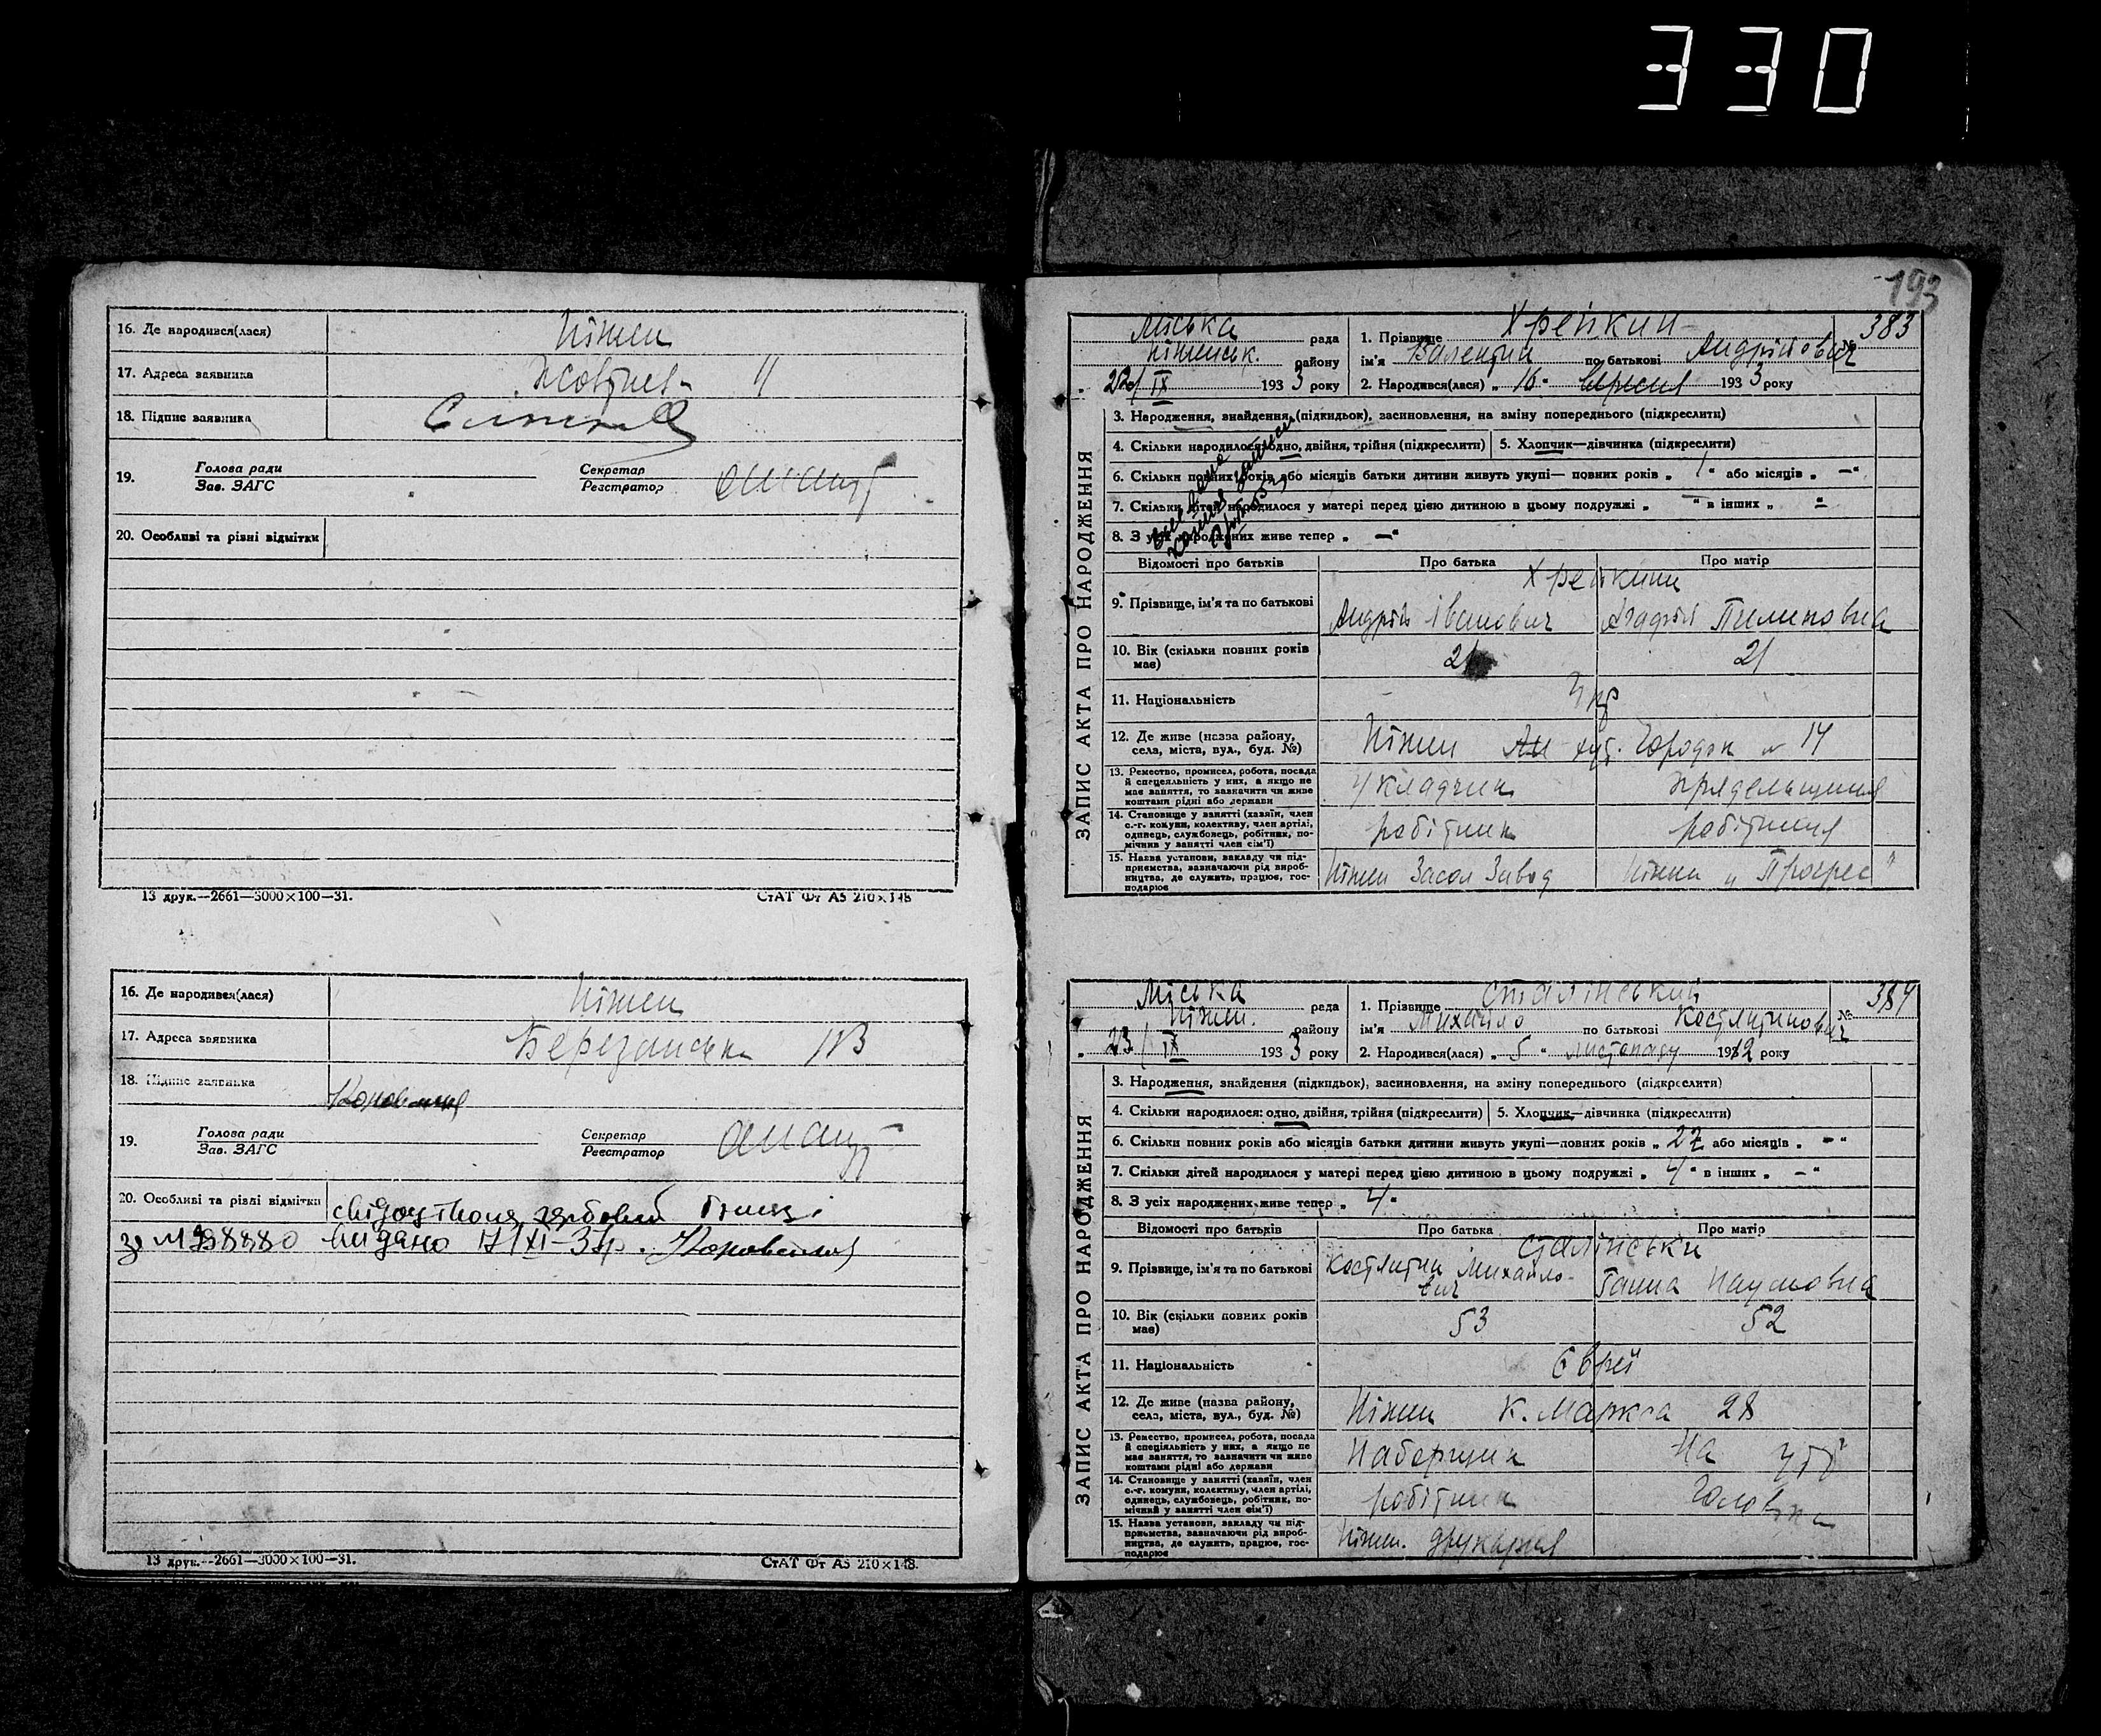 330
16. Де народився(лася) Ніжен
17. Адреса заявника
18. Підпис заявника
19. Голова ради
Зав. ЗАГС
Секретар
Реєстратор
20. Особливі та різні відмітки
13 друк.--2661—3000×100—31. СтАТ Фт А5 210×148
16. Де народився(лася) Ніжен
17. Адреса заявника Березанська
18. Підпис заявника
19. Голова ради
Зав. ЗАГС
Секретар
Реєстратор
20. Особливі та різні відмітки
видано
13 друк.--2661—3000×100—31. СтАТ Фт А5 210×148.
193
ЗАПИС АКТА ПРО НАРОДЖЕННЯ
Міська рада
Ніженськ. району
IX 1933 року
1. Прізвище Хрейкин № 383
ім'я Валентин по батькові Андрійович
2. Народився(лася) „ 16 " вересня 1933 року
3. Народження, знайдення (підкидьок), засиновлення, на зміну попереднього (підкреслити)
4. Скільки народилося: одно, двійня, трійня (підкреслити) 5. Хлопчик—дівчинка (підкреслити)
6. Скільки повних років або місяців батьки дитини живуть укупі— повних років „ 1 " або місяців „ — "
7. Скільки дітей народилося у матері перед цією дитиною в цьому подружжі „ — " в інших „ — "
8. З усіх народжених живе тепер „ — "
Відомості про батьків Про батька Про матір
9. Прізвище, ім'я та по батькові Хрейкини
Андрій Іванович Пилиповна
10. Вік (скільки повних років має) 21 21
11. Національність Укр
12. Де живе (назва району, села, міста, вул., буд. №) Ніжен 14
13. Ремество, промисел, робота, посада
й спеціяльність у них, а якщо не
має заняття, то зазначити чи живе
коштами рідні або держави
укладчик прядельщиця
14. Становище у занятті (хазяїн, член
с.-г. комуни, колективу, член артілі,
одинець, службовець, робітник, по-
мічник у занятті член сім'ї)
робітник робітниця
15. Назва установи, закладу чи під-
приємства, зазначаючи рід вироб-
ництва, де служить, працює, гос-
подарює
Ніжен Засол Завод Ніжен „ Прогрес "
ЗАПИС АКТА ПРО НАРОДЖЕННЯ
Міська рада
Ніжен. району
„ 23 / IX 1933 року
1. Прізвище Сталінський № 384
ім'я Михайло по батькові Костянтинович
2. Народився(лася) „ 5 " листопаду 1912 року
3. Народження, знайдення (підкидьок), засиновлення, на зміну попереднього (підкреслити)
4. Скільки народилося: одно, двійня, трійня (підкреслити) 5. Хлопчик—дівчинка (підкреслити)
6. Скільки повних років або місяців батьки дитини живуть укупі—повних років „ 27 " або місяців „ — "
7. Скільки дітей народилося у матері перед цією дитиною в цьому подружжі „ 4 " в інших „ — "
8. З усіх народжених живе тепер „ 4 "
Відомості про батьків Про батька Про матір
9. Прізвище, ім'я та по батькові Сталінськи
Костянтин Михайло-
вич Ганна Наумовна
10. Вік (скільки повних років має) 53 52
11. Національність Євреї
12. Де живе (назва району, села, міста, вул., буд. №) Ніжен К. Маркса 28
13. Ремество, промисел, робота, посада
й спеціяльність у них, а якщо не
має заняття, то зазначити чи живе
коштами рідні або держави
Наборщик На утр
14. Становище у занятті (хазяїн, член
с.-г. комуни, колективу, член артілі,
одинець, службовець, робітник, по-
мічний у занятті член сім'ї)
робітник Головка
15. Назва установи, закладу чи під-
приємства, зазначаючи рід вироб-
ництва, де служить, працює, гос-
подарює
Ніжен. друкарня